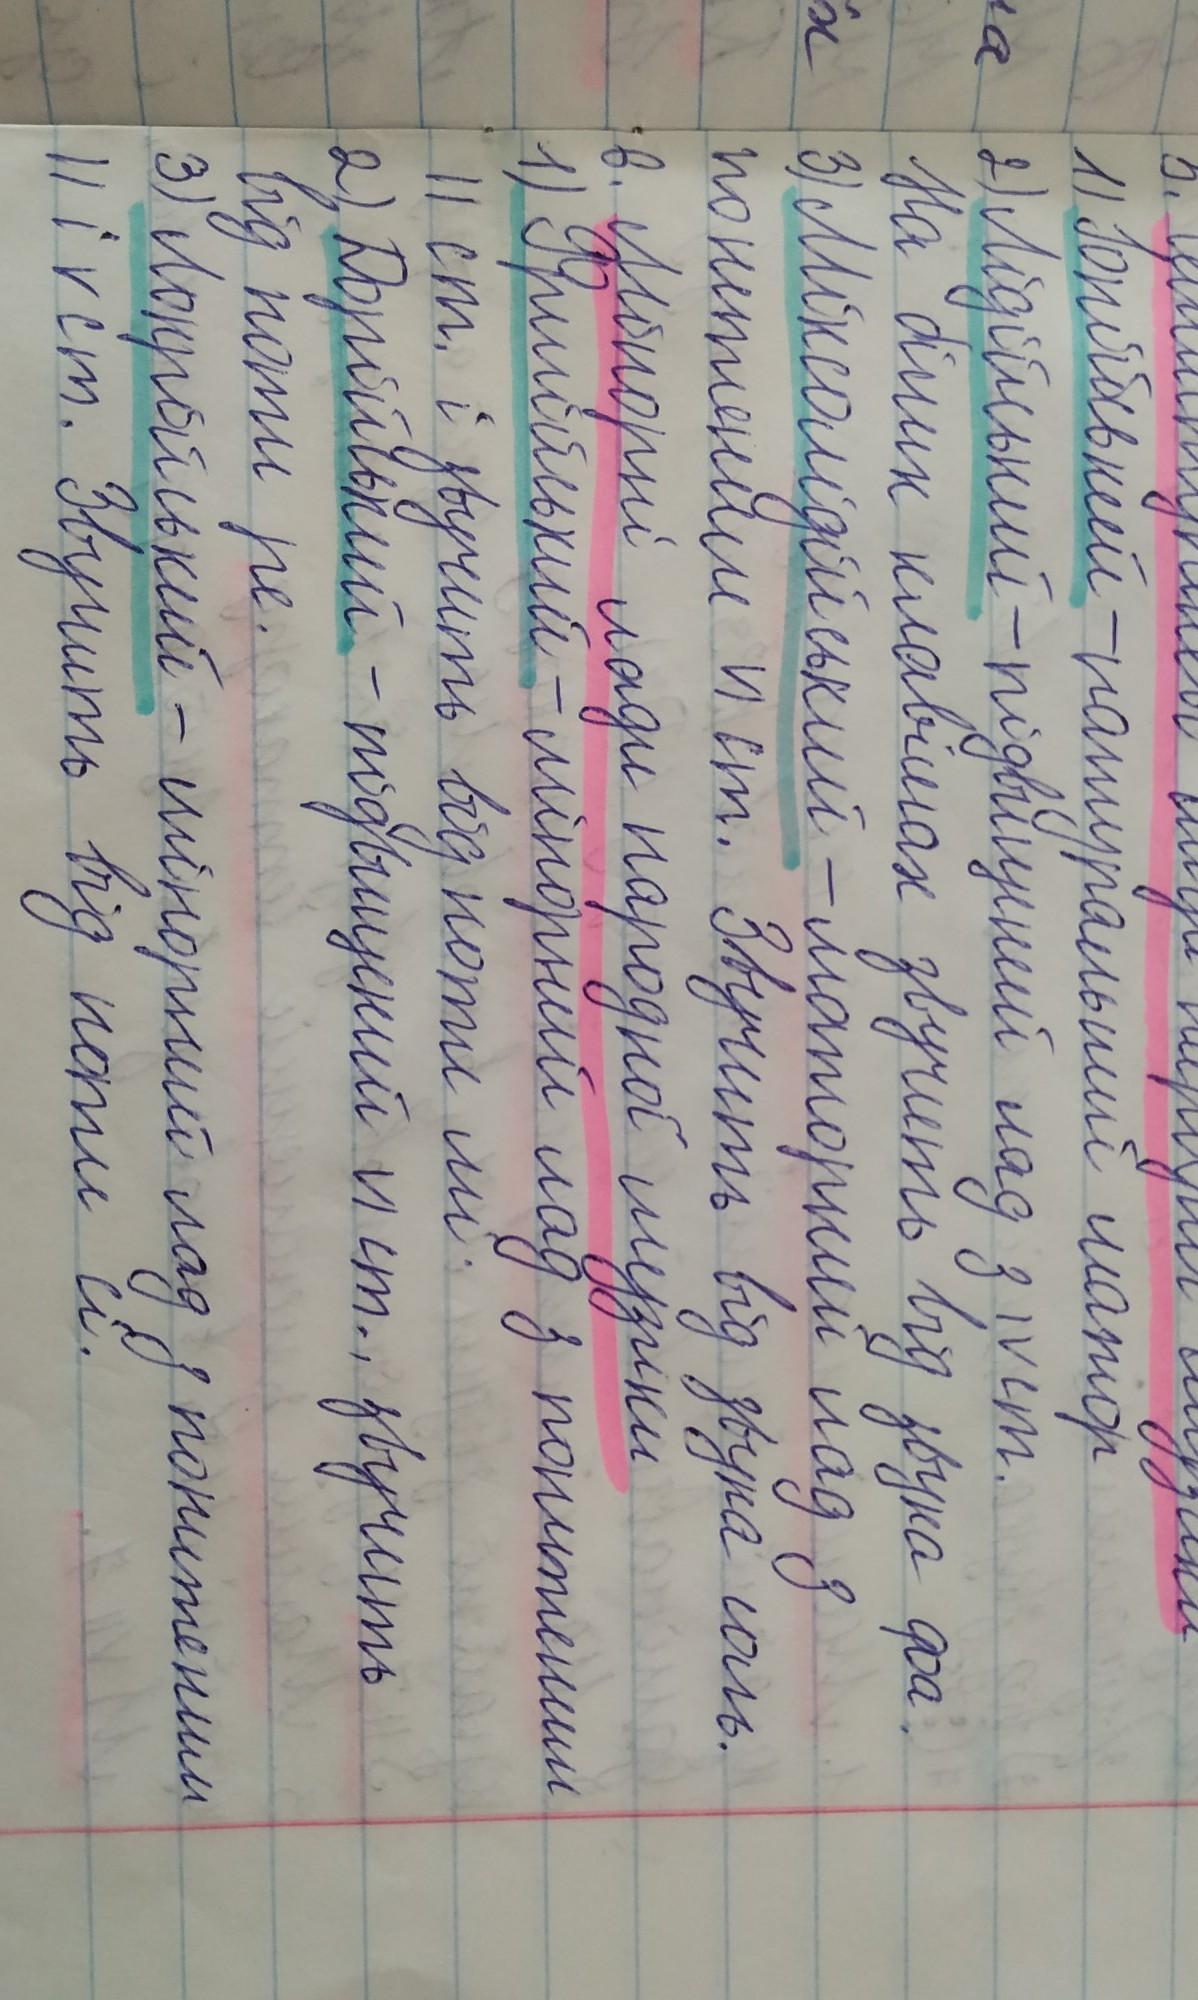 1) Іонійський – натуральний мажор
2) Лідійський – підвищений лад з IV ст.
На білих клавішах звучить від звука фа.
3) Міксолідійський – мажорний лад з
пониженим VII ст. Звучить від звука соль.
6. Мінорні лади народної музики
1) Фрігійський – мінорний лад з пониженим
II ст. і звучить від ноти мі.
2) Дорійський – підвищений VI ст., звучить
від ноти ре.
3) Локрійський – мінорний лад з пониженим
II і V ст. Звучить від ноти сі.